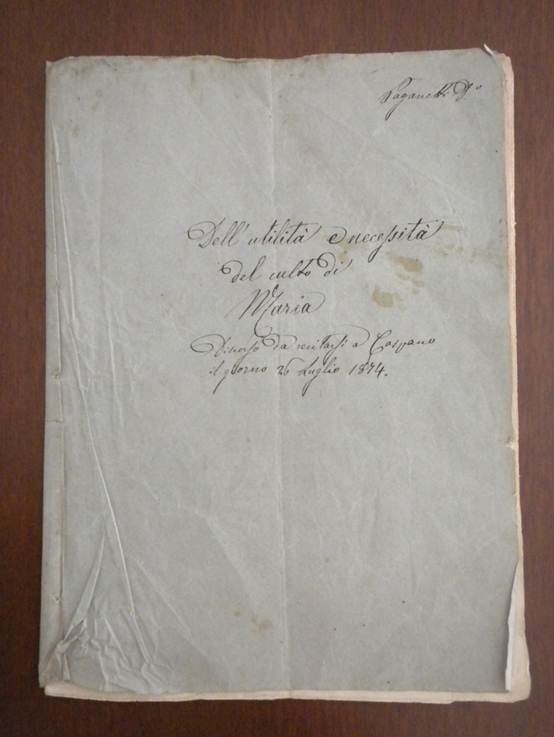 Paganelli G°
Dell'utilità e necessità
del culto di
Maria
Discorso da recitarsi a Caspano
il giorno 26 Luglio 1874.